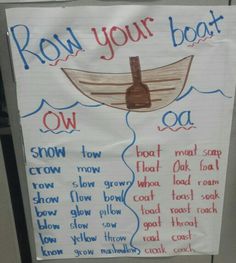 Row your boat
ow oa
snow tow boat moat soap
crow mow float Oak foal
row slow grown whoa load roam
show flow bowl coat toast soak
bow glow pillow toad roast roach
blow slow sow goat throat
low yellow throw road coast
know grow marshmallow croak coach